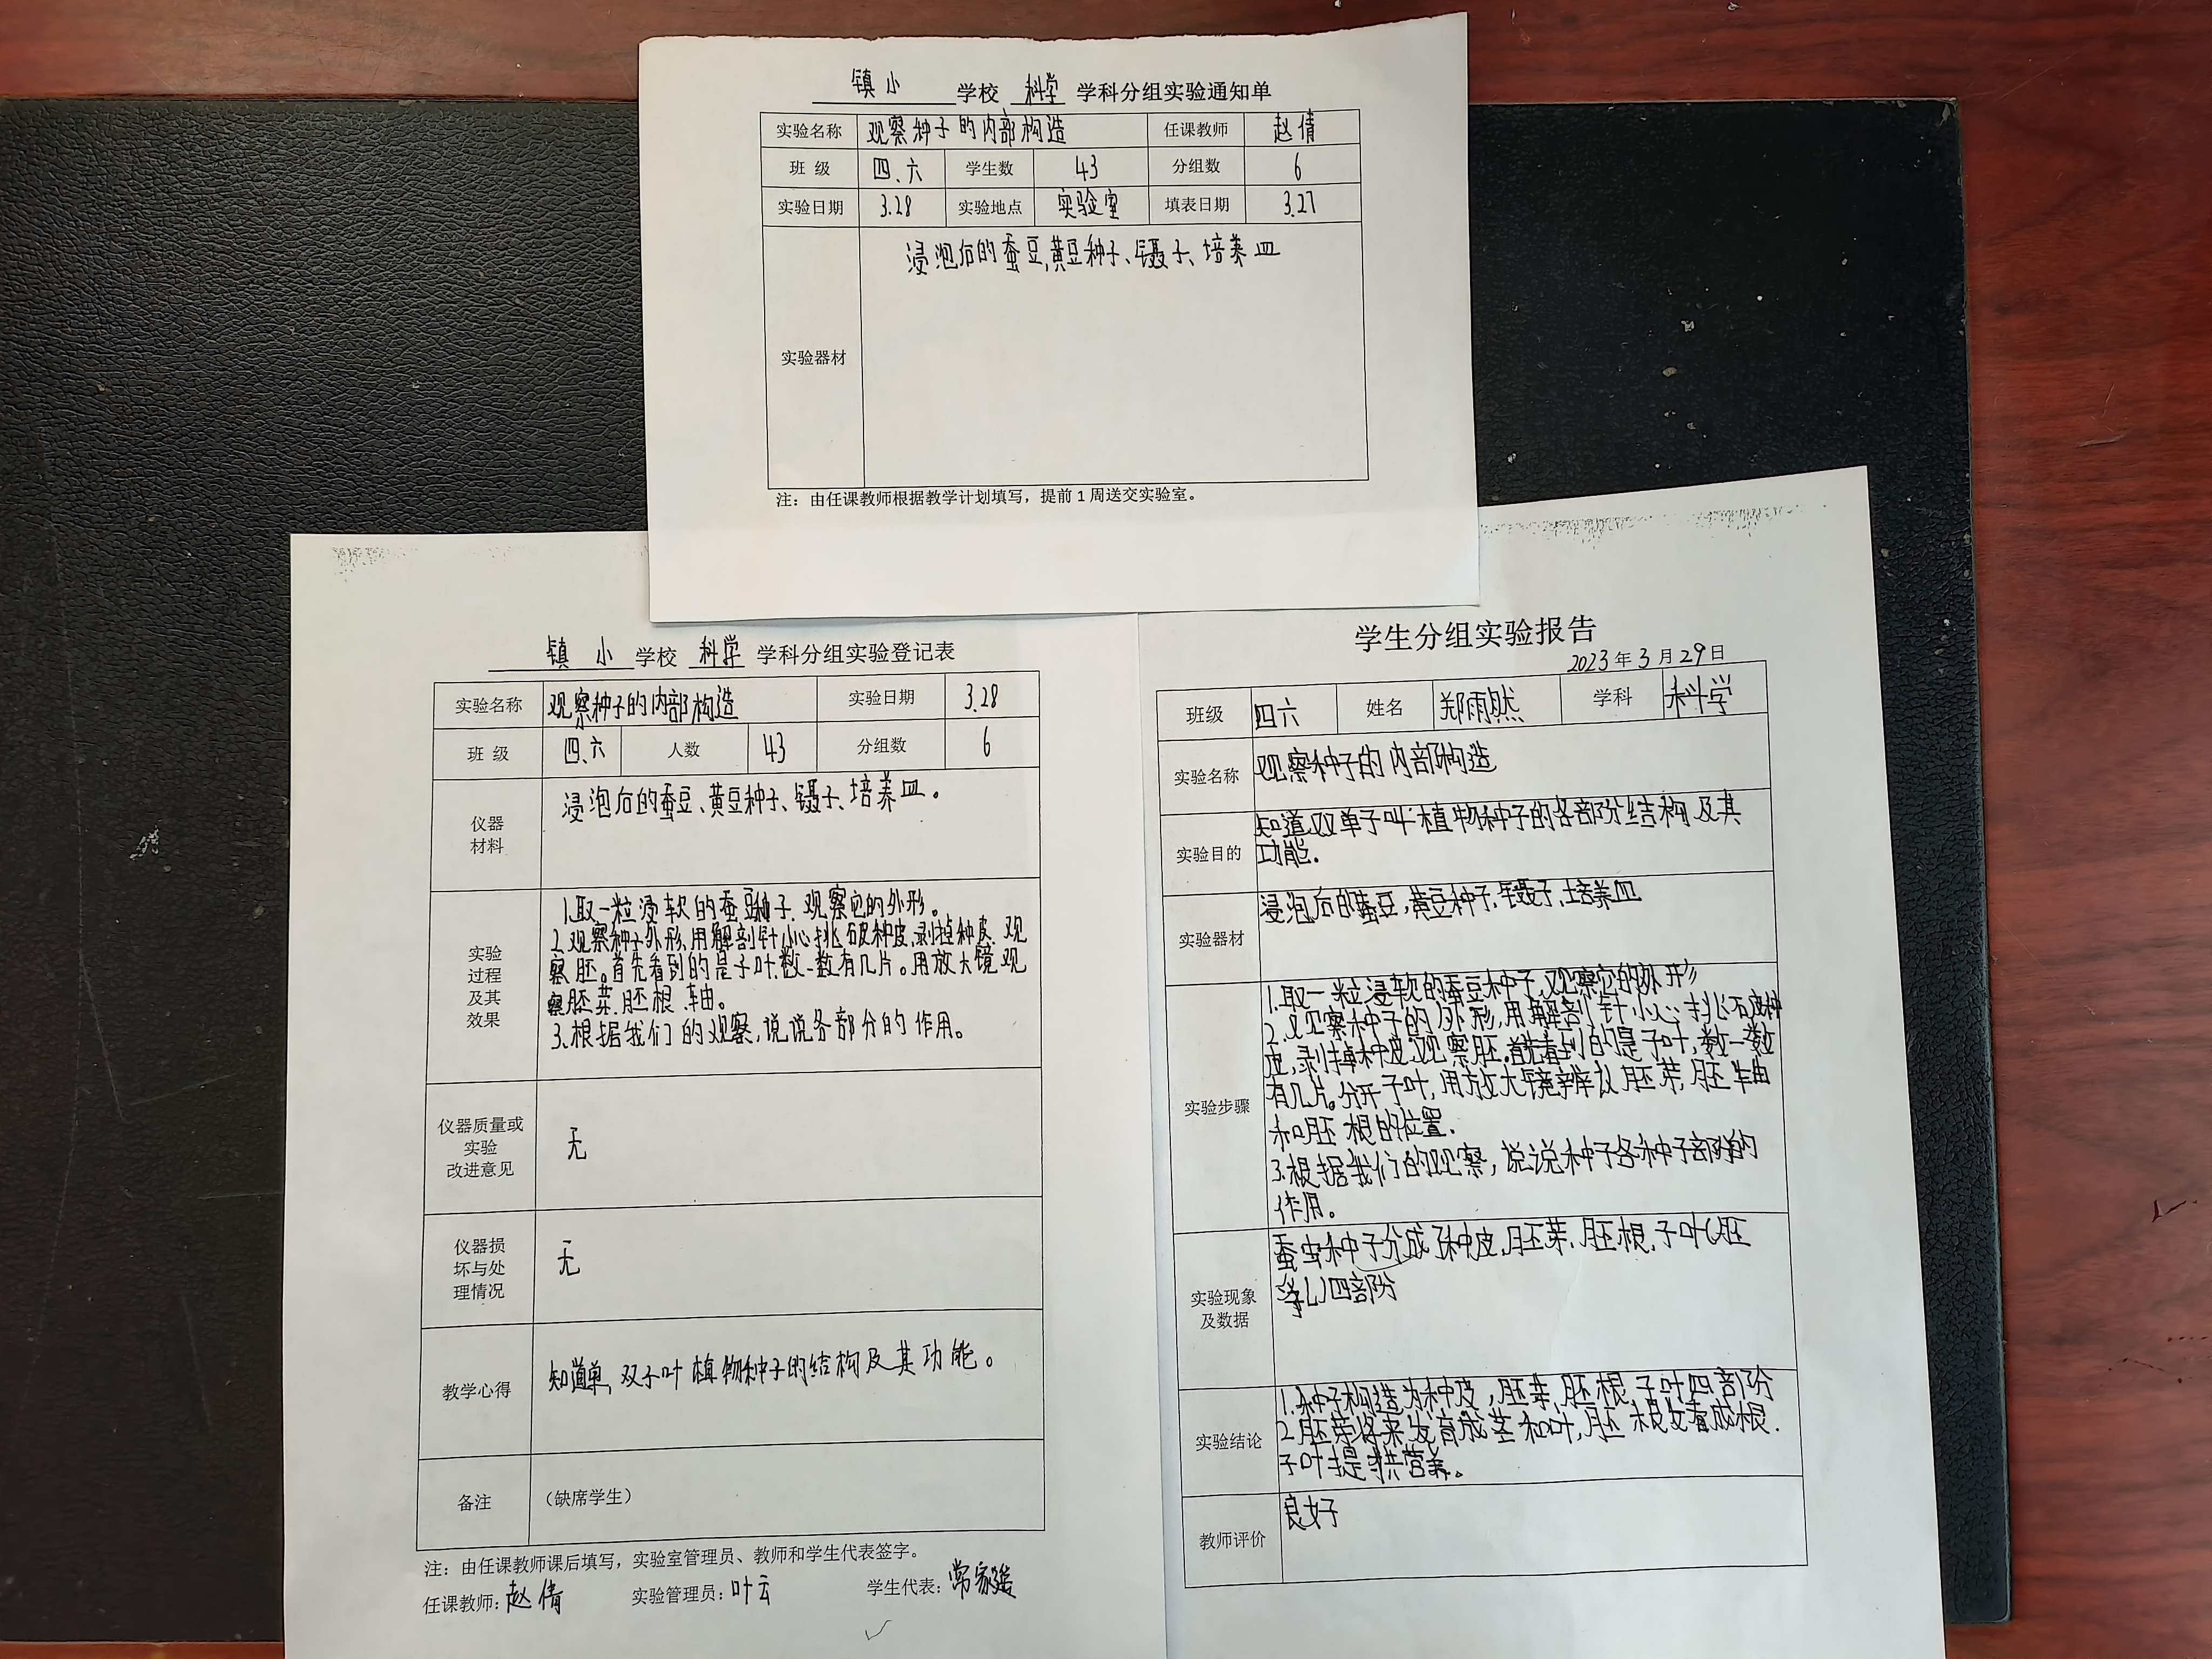 镇小 学校 科学 学科分组实验通知单
实验名称 观察种子的内部构造 任课教师 赵倩
班 级 四、六 学生数 43 分组数 6
实验日期 3.28 实验地点 实验室 填表日期 3.27
实验器材 浸泡后的蚕豆,黄豆种子、镊子、培养皿
注：由任课教师根据教学计划填写，提前1周送交实验室。
镇 小 学校 科学 学科分组实验登记表
实验名称 观察种子的内部构造 实验日期 3.28
班 级 四、六 人数 43 分组数 6
仪器
材料
浸泡后的蚕豆、黄豆种子、镊子、培养皿。
实验
过程
及其
效果
1.取一粒浸软的蚕豆种子.观察它的外形。
2.观察种子外形,用解剖针小心挑破种皮,剥掉种皮.观
察胚。首先看到的是子叶.数一数有几片。用放大镜观
察胚芽.胚根.轴。
3.根据我们的观察,说说各部分的作用。
仪器质量或
实验
改进意见
无
仪器损
坏与处
理情况
无
教学心得 知道单,双子叶植物种子的结构及其功能。
备注 （缺席学生）
注：由任课教师课后填写，实验室管理员、教师和学生代表签字。
任课教师：赵倩 实验管理员：叶云 学生代表：常家
学生分组实验报告
2023年3月29日
班级 四六 姓名 郑雨然 学科 科学
实验名称 观察种子的内部构造
实验目的
知道双单子叶植物种子的各部分结构及其
功能.
实验器材 浸泡后的蚕豆,黄豆种子,镊子,培养皿
实验步骤
1.取一粒浸软的蚕豆种子,观察它的外形
2.观察种子的外形,用解剖针小心挑破种
皮,剥掉种皮观察胚.首先看到的是子叶,数一数
有几片。分开子叶,用放大镜辨认胚芽,胚轴
和胚根的位置.
3.根据我们的观察,说说种子各种子部份的
作用。
实验现象
及数据
蚕虫种子分成种皮,胚芽,胚根,子叶(胚
)四部份
实验结论
1.种子构造为种皮,胚芽,胚根,子叶四部份
2.胚芽将来发育成茎和叶,胚根发育成根.
子叶提供营养。
教师评价 良好